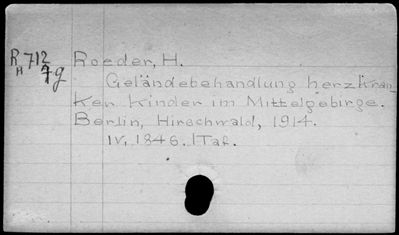 R 712 Roeder, H.
H 7g
Geländebehandlung herzkran-
ken Kinder im Mittelgebirge.
Berlin, Hirschwald, 1914.
IV, 184 S. 1 Taf.